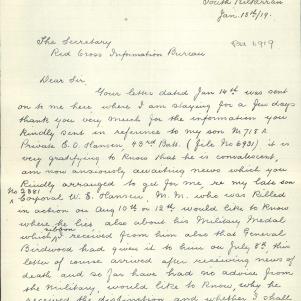 South Kilkerran
Jan. 18th/19.
The Secretary
Red Cross Information Bureau
Dear Sir.
Your letter dated Jan 14th was sent
on to me here where I am staying for a few days
thank you very much for the information you
kindly sent in reference to my son No 718 A
Private E. O. Hansen, 43rd Batt. (file No 6931) it is
very gratifying to know that he is convalescent,
am now anxiously awaiting news which you
kindly arranged to get for me, re my late son
No 2881 Corporal W. E. Hansen, M. M. who was killed
in action on Aug 10th or 12th would like to know
where he lies also about his Military Medal
ribbon
which I received from him also that General
Birdwood had given it to him on July 8th this
letter of course arrived after receiving news of
death and so far have had no advice from
the Military, would like to know, why he
received the distinction and whether I shall